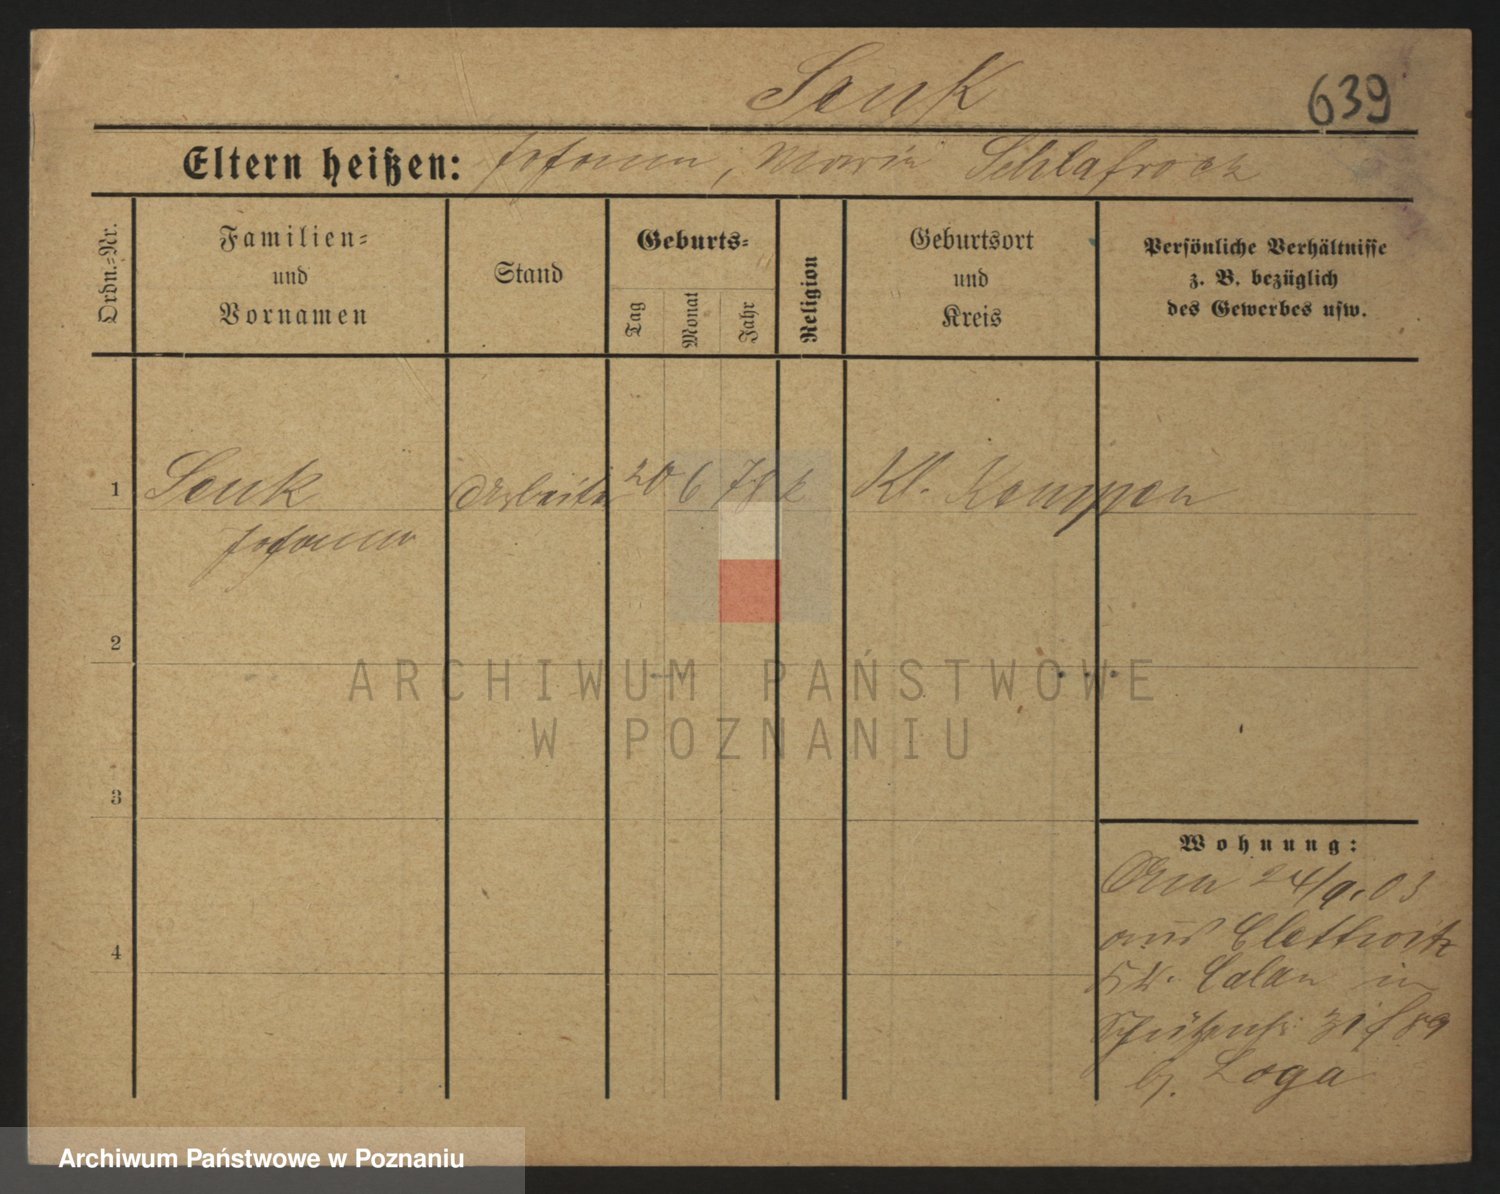 Senk
639
Eltern heißen: Johann, Maria Schlafrock
Ordn.-Nr.
Familien-
und
Vornamen
Stand
Geburts-
Tag
Monat
Jahr
Religion
Geburtsort
und
Kreis
Persönliche Verhältnisse
z. B. bezüglich
des Gewerbes usw.
1
Senk Arbeiter 20 6 78 k Kl. Kempen
Johann
2
ARCHIWUM PAŃSTWOWE
W POZNANIU
3
Wohnung:
Am 24/9.03
aus Clettwitz
Kr. Calau in
Schützenstr. 31 f 89
b. Loga
4
Archiwum Państwowe w Poznaniu